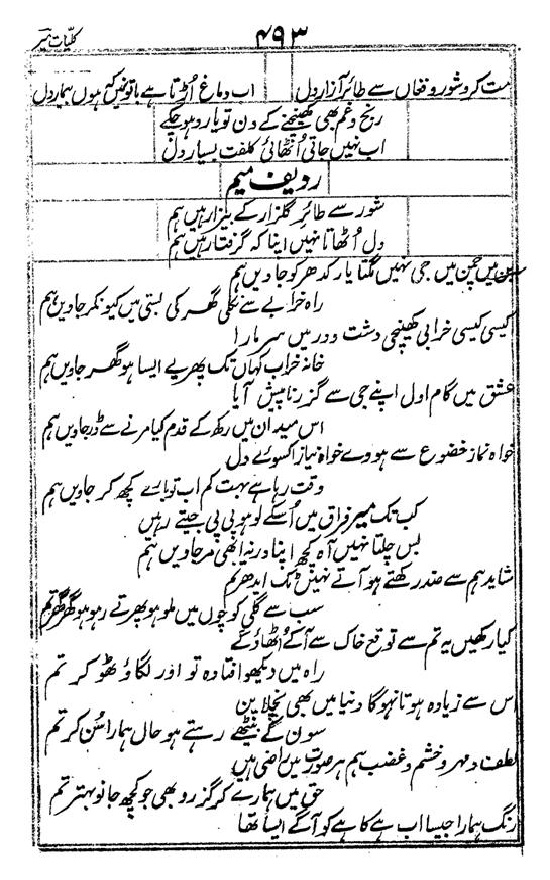 ۴۹۳
کلیات میر
مت کرو شور و فغاں سے طائر آزار دل
اب دماغ اُڑتا ہے باتوں میں کہ ہوں بیمار دل
رنج و غم بھی کھینچنے کے دن تو یارو ہو چکے
اب نہیں جاتی اُٹھائی کلفت بسیار دل
ردیف میم
شور سے طائر گلزار کے بیزار ہیں ہم
دل اُٹھاتا نہیں اپنا کہ گرفتار ہیں ہم
بن میں چمن میں جی نہیں لگتا یار کدھر کو جاویں ہم
راہ خرابے سے نکلی گھر کی بستی میں کیونکر جاویں ہم
کیسی کیسی خرابی کھینچی دشت و در میں سر مارا
خانہ خراب کہاں تک پھریے ایسا ہو گھر جاویں ہم
عشق میں گام اول اپنے جی سے گزرنا پیش آیا
اس میدان میں رکھ کے قدم کیا مرنے سے ڈر جاویں ہم
خواہ نماز خضوع سے ہووے خواہ نیاز اکسوئے دل
وقت رہا ہے بہت کم اب تو بارے کچھ کر جاویں ہم
کب تک میر فراق میں اُسکے لوہو پی پی جیتے رہیں
بس چلتا نہیں آہ کچھ اپنا ورنہ ابھی مر جاویں ہم
شاید ہم سے ضد رکھتے ہو آتے نہیں ٹک ایدھر تم
سب سے گلی کوچوں میں ملو ہو پھرتے رہو ہو گھر گھر تم
کیا رکھیں یہ تم سے توقع خاک سے آ کے اُٹھاؤ گے
راہ میں دیکھو افتادہ تو اور لگاؤ ٹھوکر تم
اس سے زیادہ ہوتا نہوگا دنیا میں بھی نچلا پن
سون کئے بیٹھے رہتے ہو حال ہمارا سُن کر تم
لطف و مہر و خشم و غضب ہم ہر صورت میں راضی ہیں
حق میں ہمارے کر گزرو بھی جو کچھ جانو بہتر تم
رنگ ہمارا جیسا اب ہے کاہے کو آگے ایسا تھا